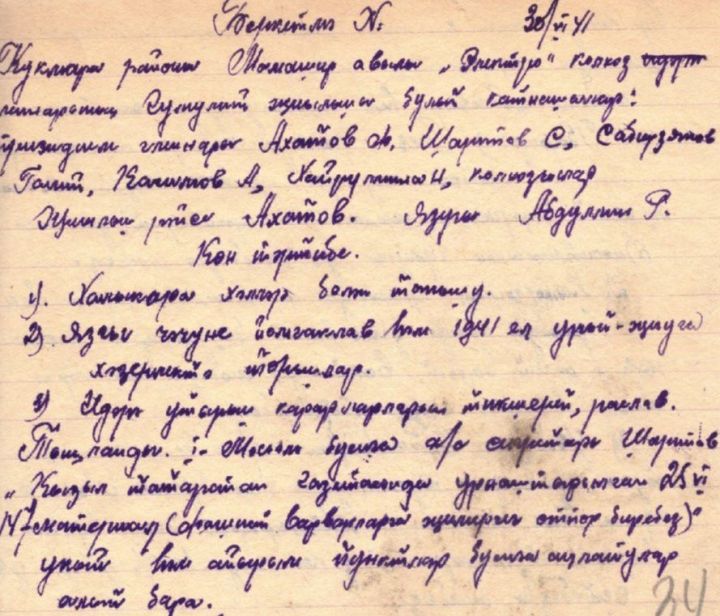 Беркетмә №: 30/VI 41
Кукмара районы Мамашир авылы „ " колхоз идарә
гомуми җыелышы булып катнашалар:
президиум членнары Ахатов Ф. Шарипов С, Сабирзянов
Галий, Касимов А, Хайруллин Н, колхозчылар
Җыелыш рәисе Ахатов. Язучы Абдуллин Г.
Көн тәртибе.
1). Халыкара хәлләр белән танышу.
2) Язгы чәчүне йомгаклав һәм 1941 ел урып-җыюга
хәзерлектә торышлар.
3) Идарә утырыш карарларларын тикшереп, раслав.
Тыңланды. 1- Мәсьәлә буенча к/с Шарипов
„Кызыл татарстан газетасында урнаштырылган 25 VI
147 материал (фашист варварларга җимергеч отпор бирәбез)"
укып һәм айырым пунктлар буенча аңлатулар
алып бара.
24